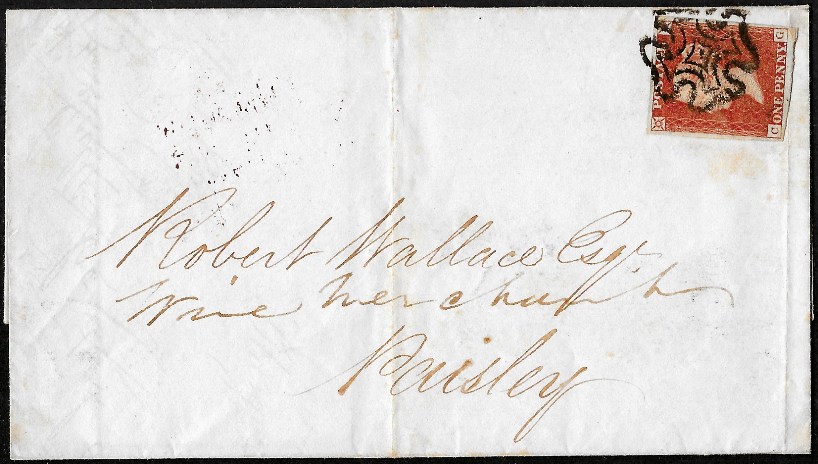 POSTAGE
ONE PENNY
C G
Robert Wallace Esqr
Wine Merchant
Paisley